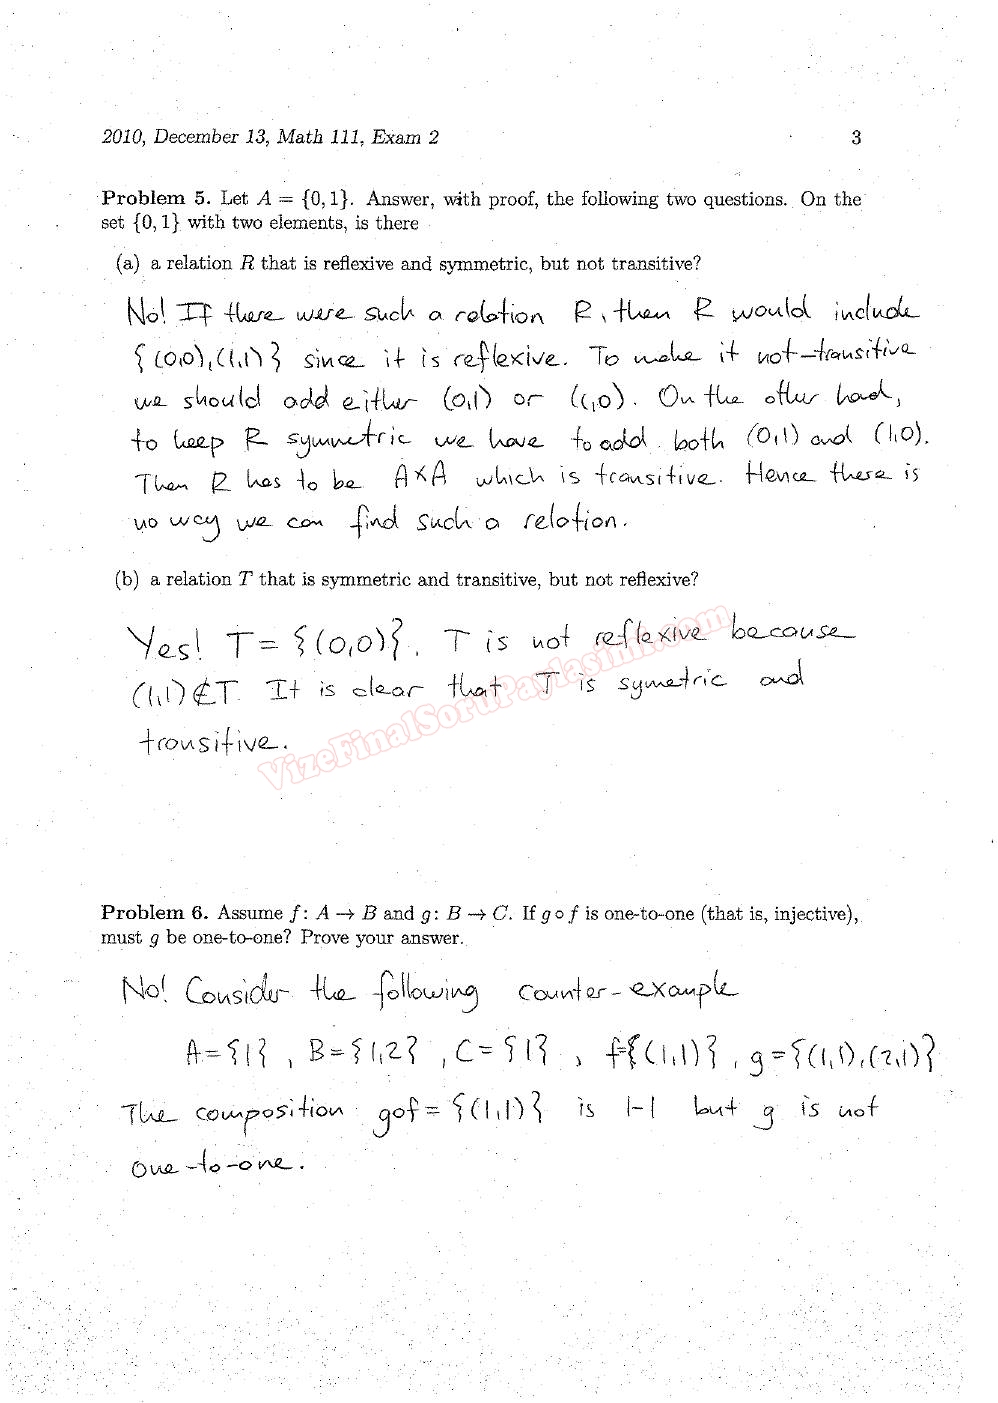 2010, December 13, Math 111, Exam 2 3
Problem 5. Let A = {0, 1}. Answer, with proof, the following two questions. On the
set {0, 1} with two elements, is there
(a) a relation R that is reflexive and symmetric, but not transitive?
No! If there were such a relation R, then R would include
{(0,0),(1,1)} since it is reflexive. To make it not-transitive
we should add either (0,1) or (1,0). On the other hand,
to keep R symmetric we have to add both (0,1) and (1,0).
Then R has to be A×A which is transitive. Hence there is
no way we can find such a relation.
(b) a relation T that is symmetric and transitive, but not reflexive?
Yes! T = {(0,0)}. T is not reflexive because
(1,1)∉T. It is clear that T is symetric and
transitive.
VizeFinalSoruPaylasimi.com
Problem 6. Assume f: A → B and g: B → C. If g ∘ f is one-to-one (that is, injective),
must g be one-to-one? Prove your answer.
No! Consider the following counter-example
A={1}, B={1,2}, C={1}, f={(1,1)}, g={(1,1),(2,1)}
The composition gof={(1,1)} is 1-1 but g is not
one-to-one.